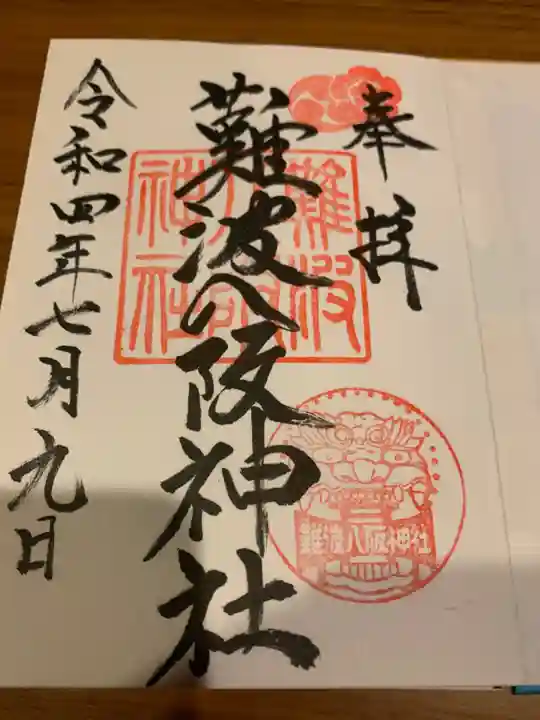 奉拝
難波八阪神社
難波八阪神社
難波八阪神社
令和四年七月九日